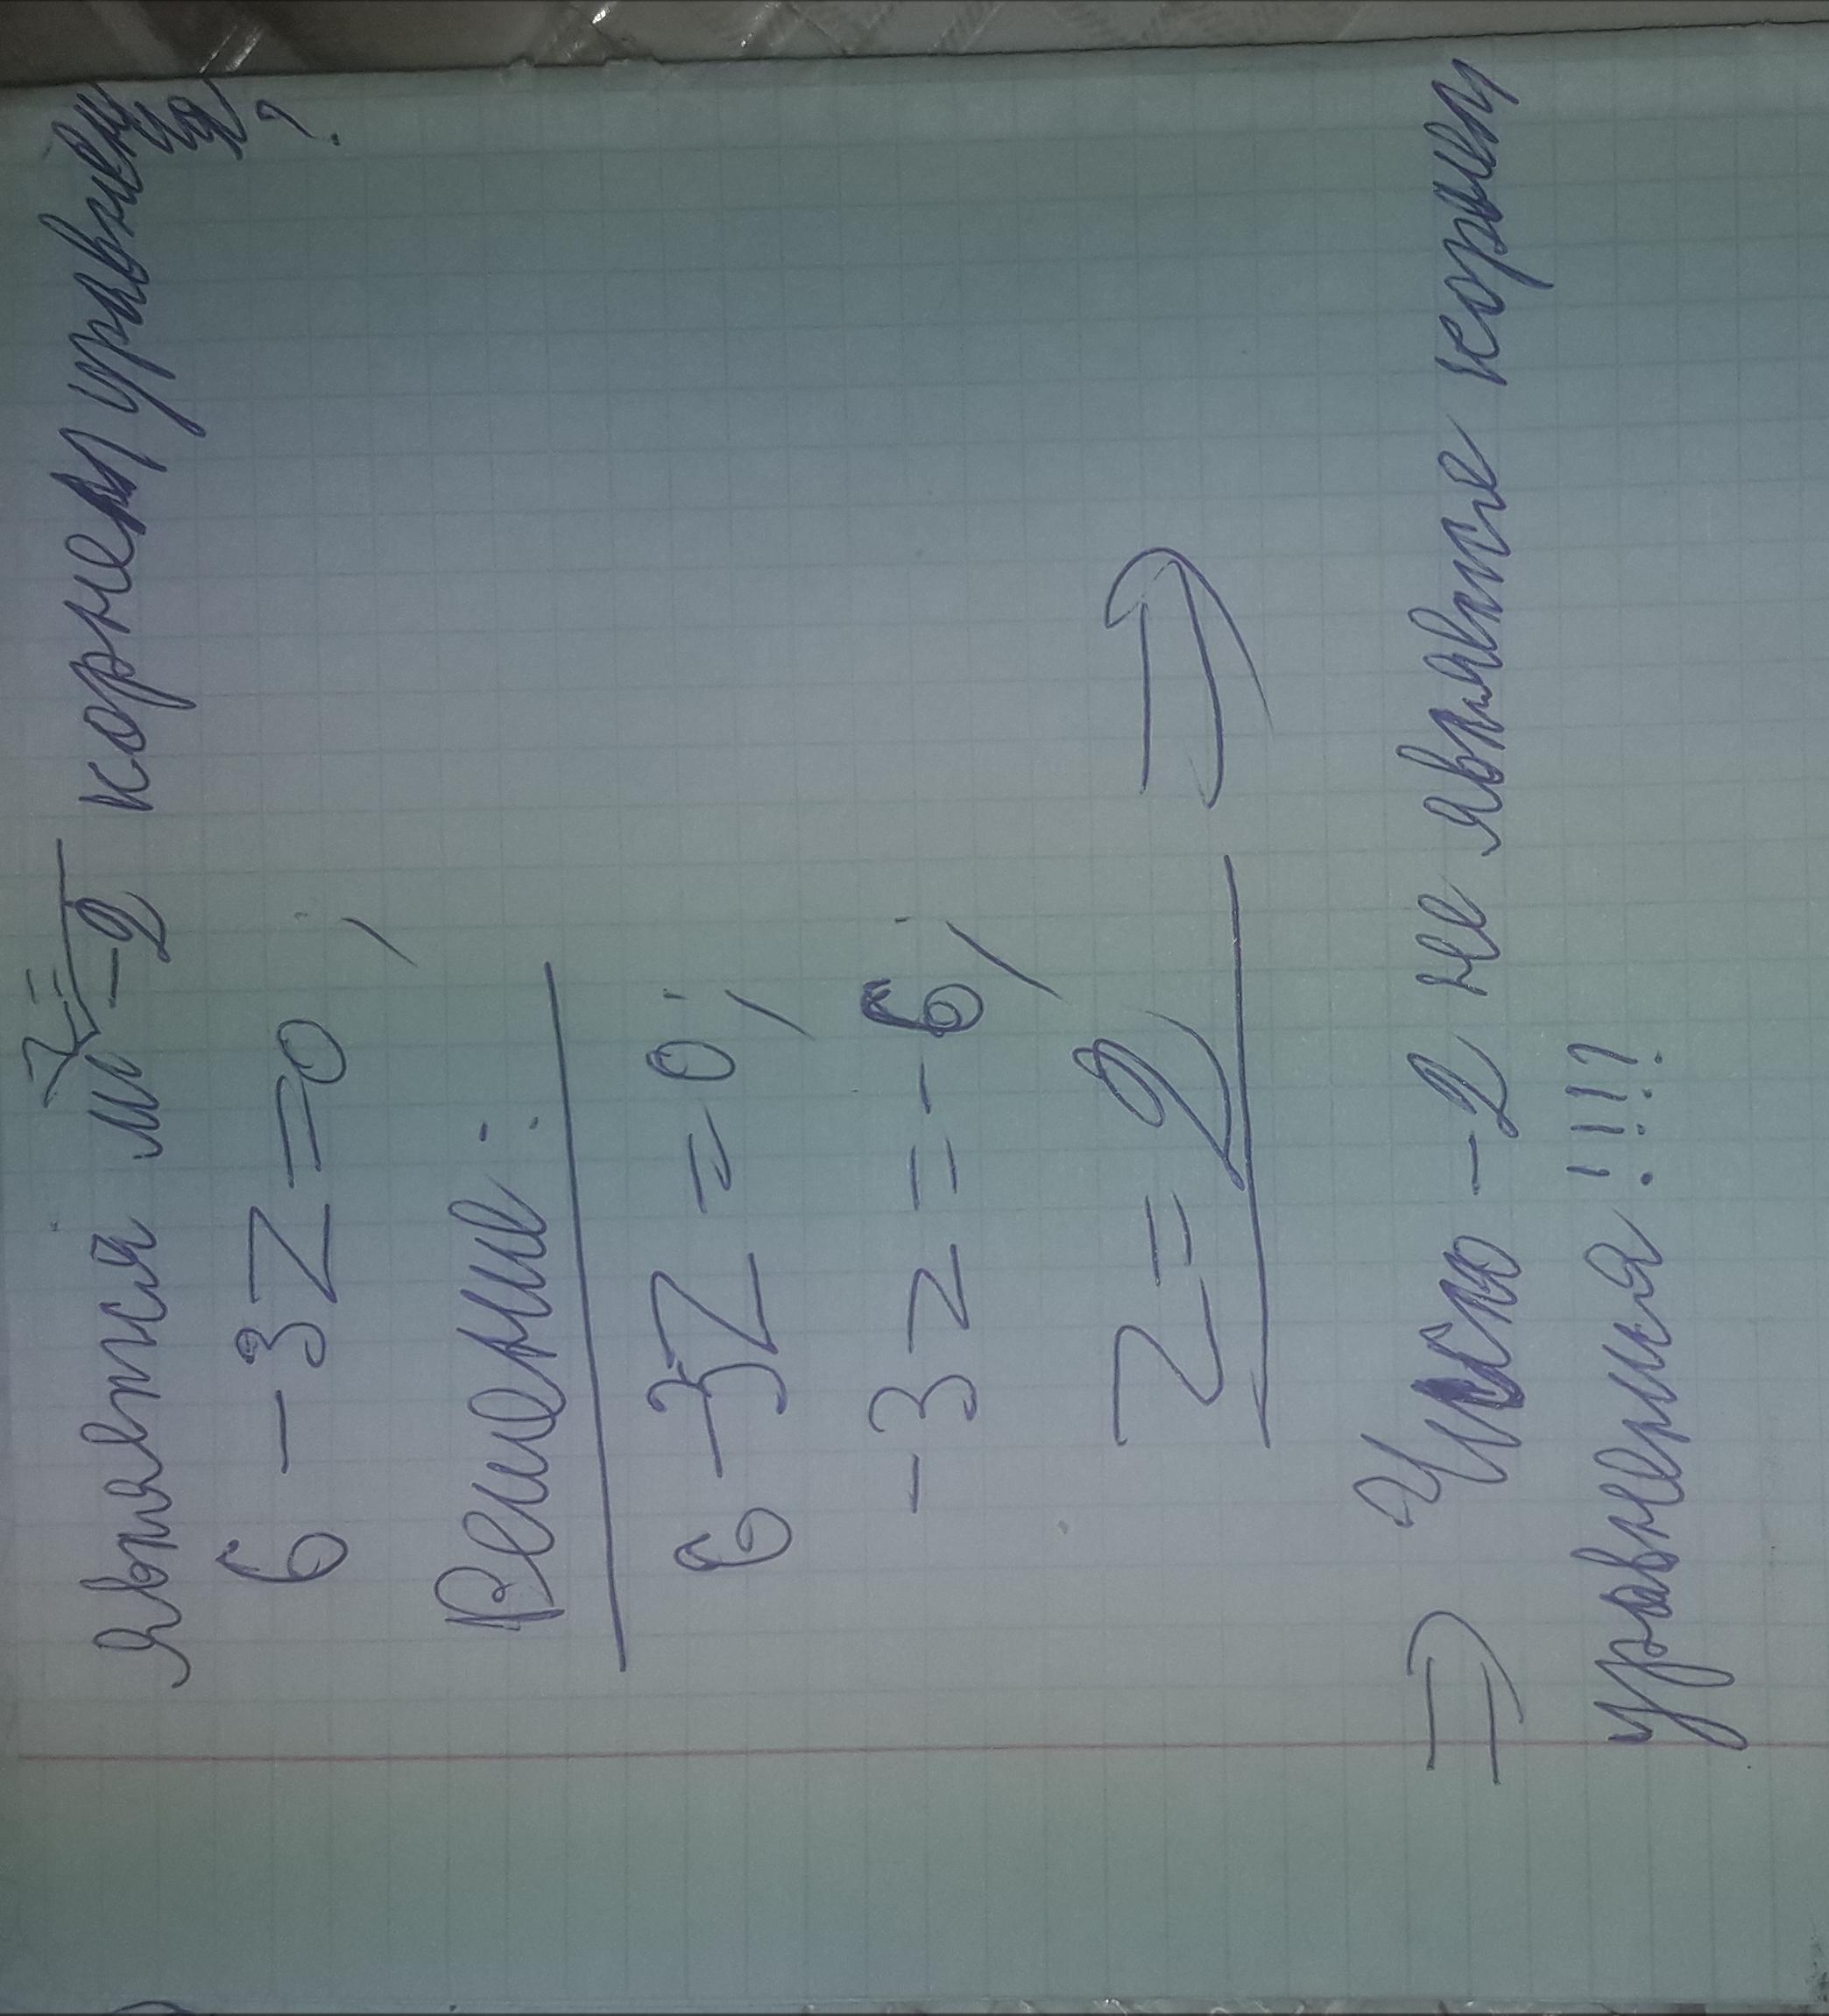 Является ли z= -2 корнем уравнения?
6 - 3z = 0;
Решение:
6 - 3z = 0;
-3z = -6;
z = 2 ⇒
⇒ Число -2 не является корнем
уравнения!!!!